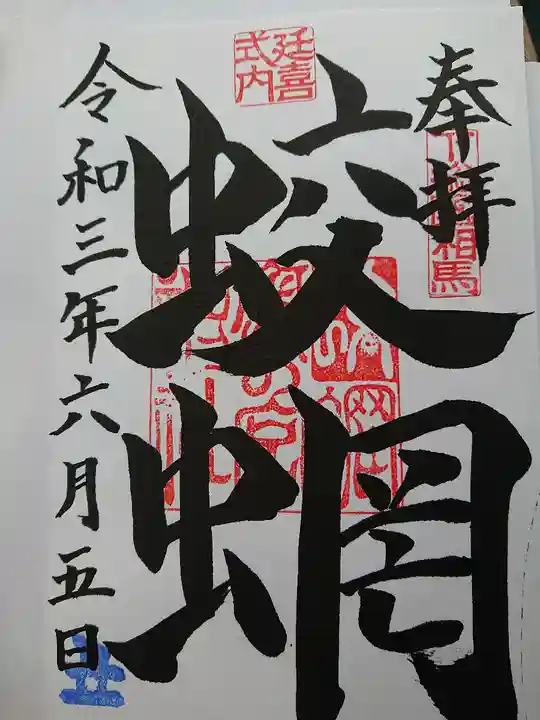 奉拝
相馬
延喜
式内
蛟蝄
令和三年六月五日